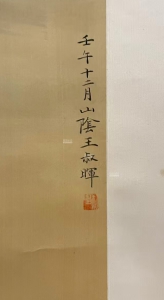 壬午十二月山陰王叔暉